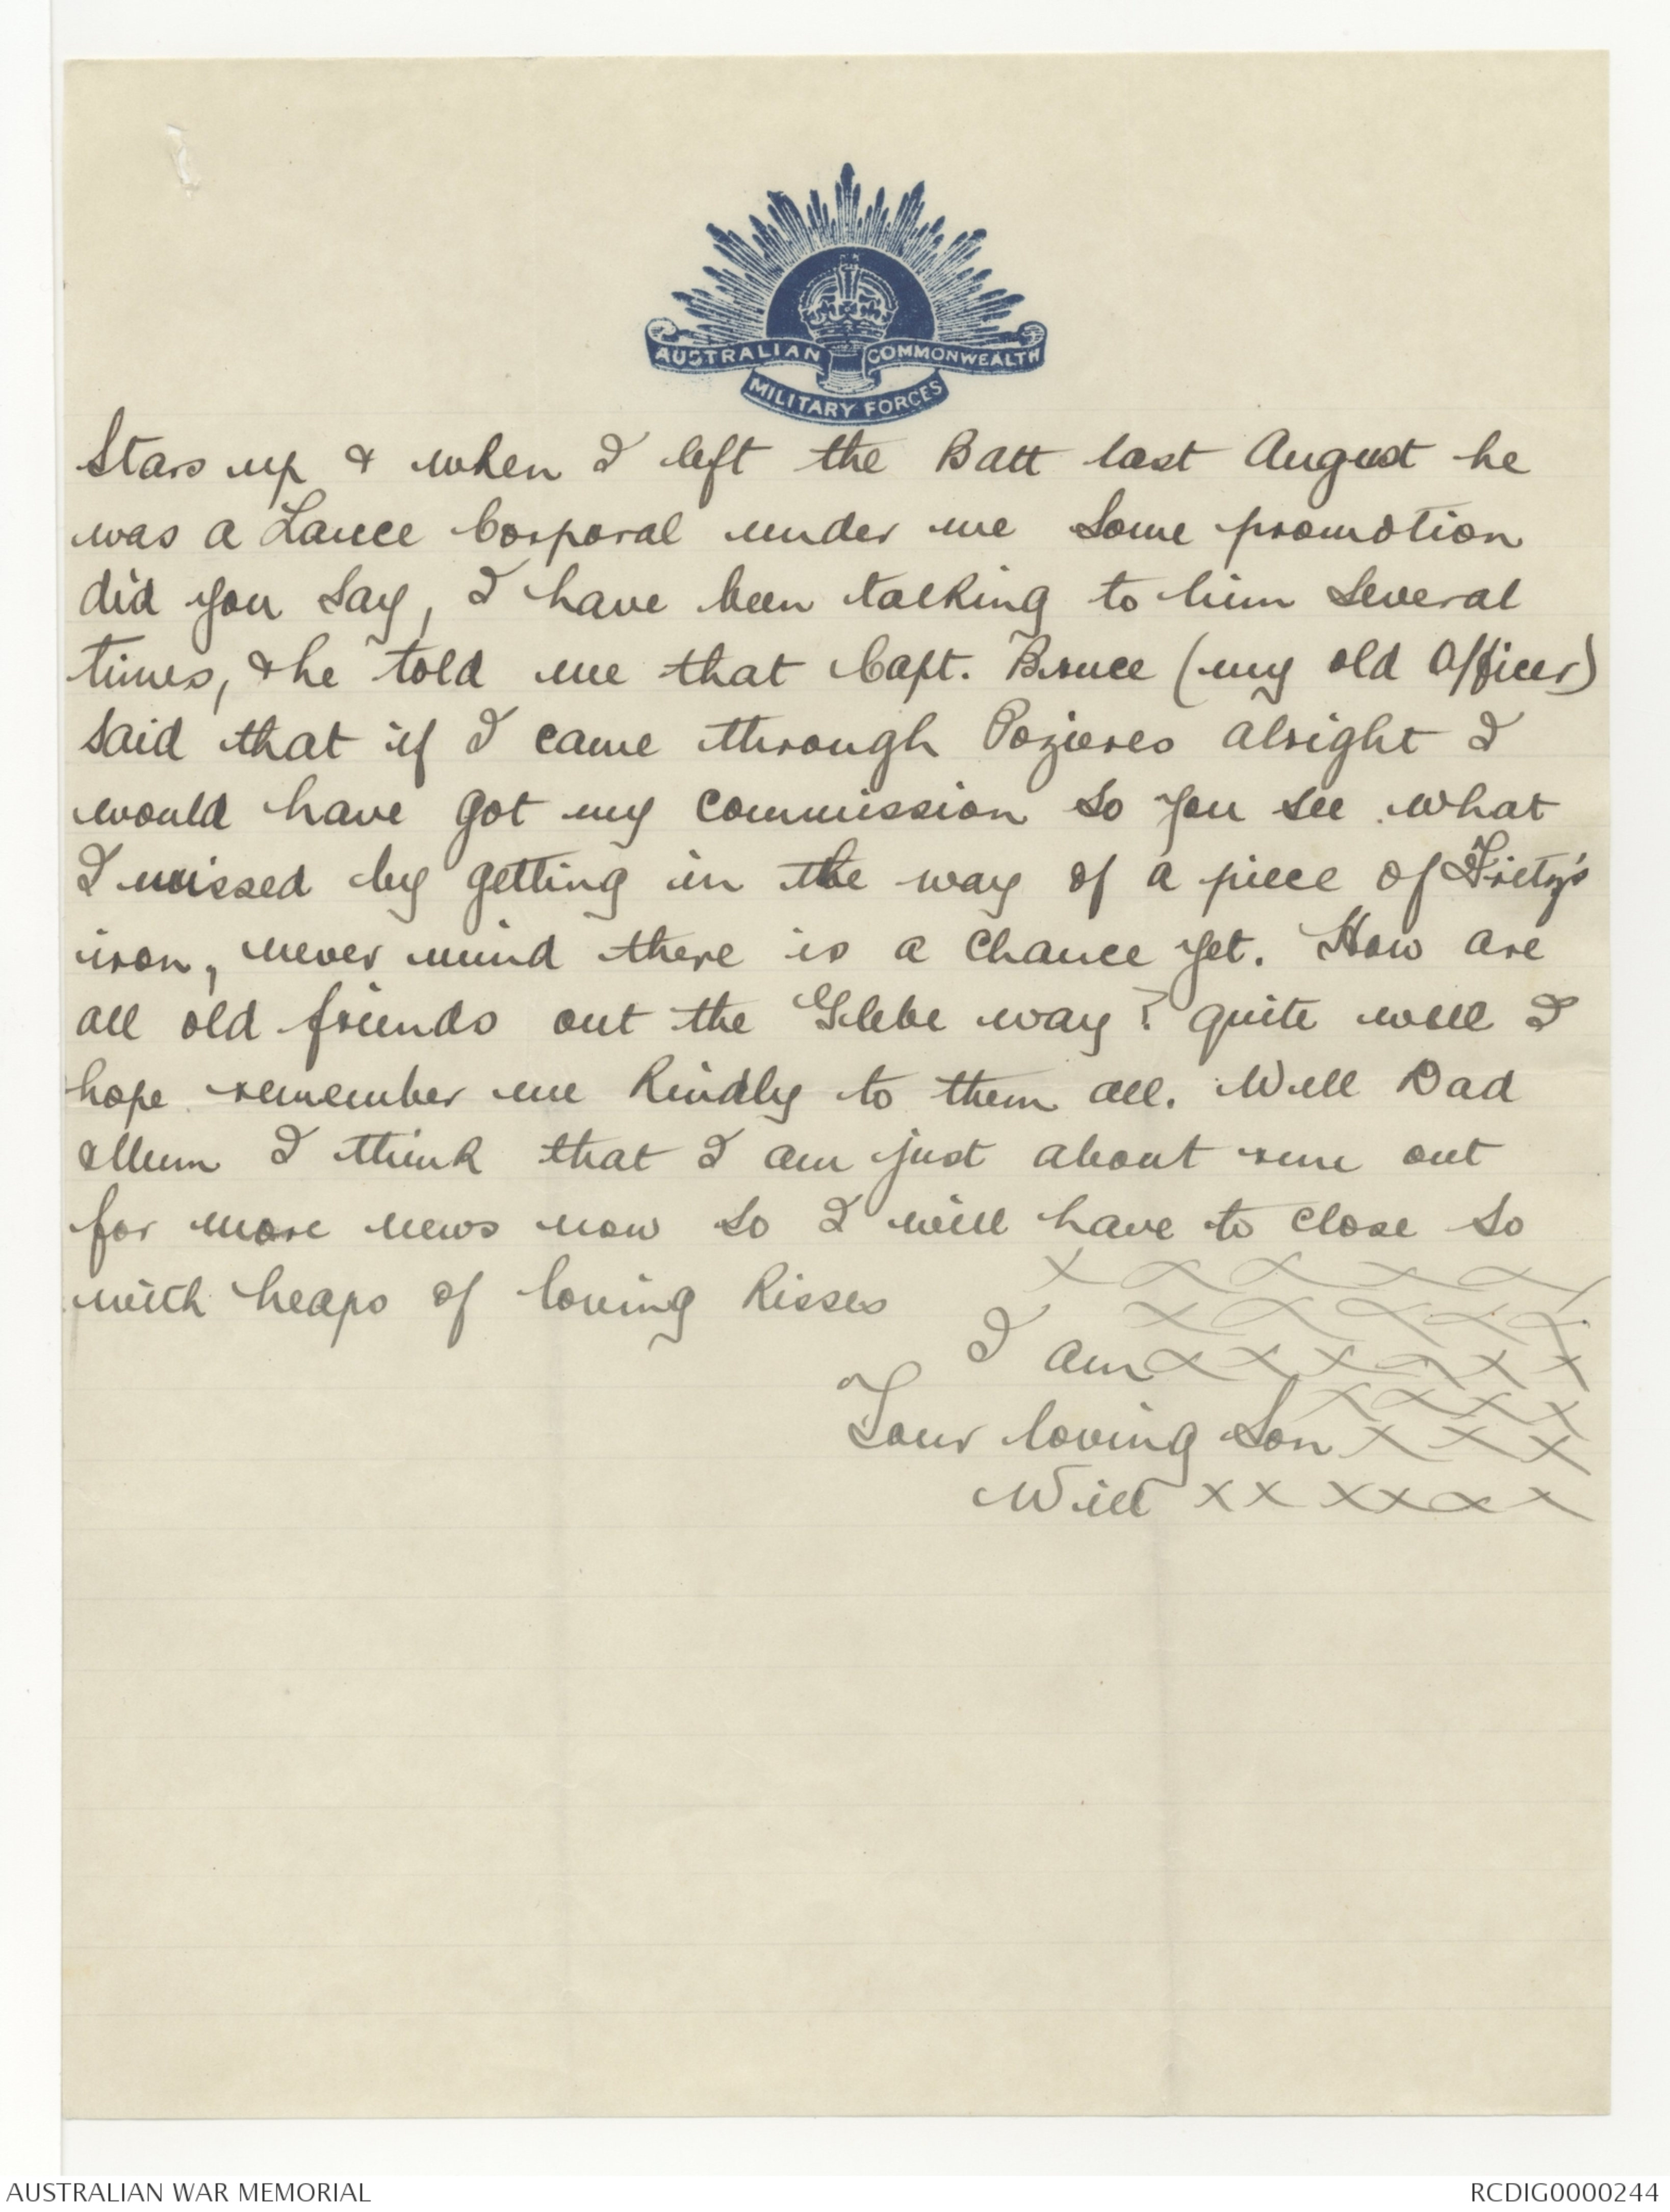 AUSTRALIAN COMMONWEALTH
MILITARY FORCES
Stars up & when I left the Batt last August he
was a Lance Corporal under me Some promotion
did you say, I have been talking to him several
times, & he told me that Capt. Bruce (my old Officer)
said that if I came through Pozieres alright I
would have got my commission so you see what
I missed by getting in the way of a piece of Fritz's
iron, never mind there is a chance yet. How are
all old friends out the Glebe way? quite well I
hope remember me kindly to them all. Well Dad
& Mum I think that I am just about run out
for more news now so I will have to close so
with heaps of loving kisses x x x x x
x x x x x
I am x x x x x x
x x x x
Your loving Son x x x
Will x x x x x x
AUSTRALIAN WAR MEMORIAL RCDIG0000244